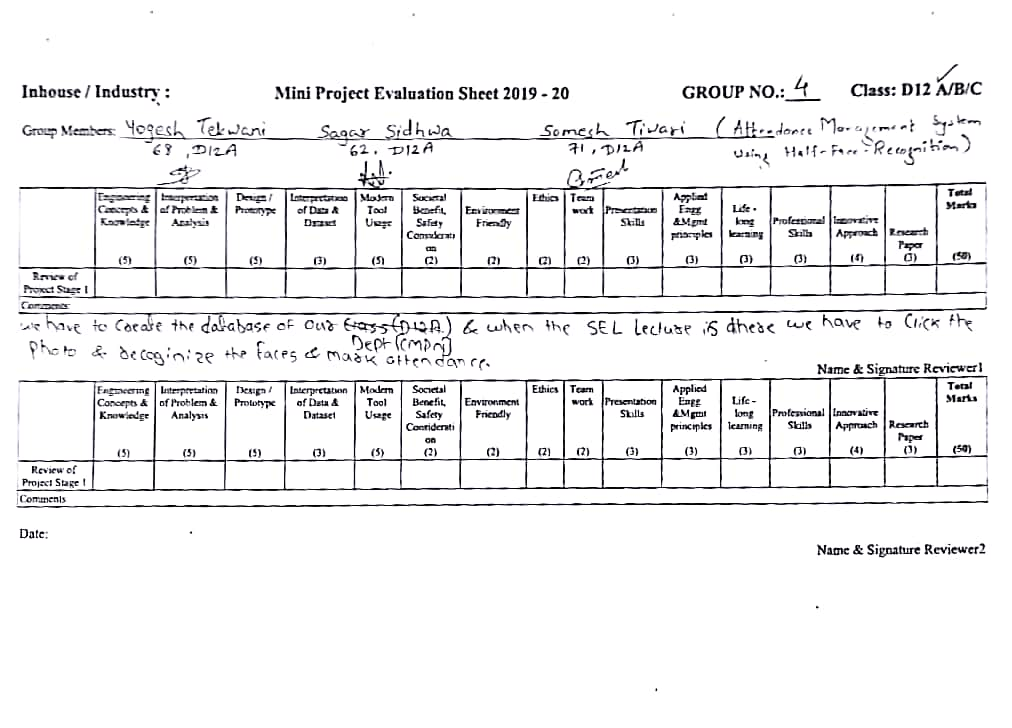 Inhouse / Industry : Mini Project Evaluation Sheet 2019 - 20 GROUP NO.: 4 Class: D12 A/B/C
Group Members: Yogesh Tekwani Sagar Sidhwa Somesh Tiwari (Attendance Management System
68, D12A 62, D12A 71, D12A Using Half-Face-Recognition)
Engineering Concepts & Knowledge (5) Interpretation of Problem & Analysis (5) Design / Prototype (5) Interpretation of Data & Dataset (3) Modern Tool Usage (5) Societal Benefit, Safety Considerati on (2) Environment Friendly (2) Ethics (2) Team work (2) Presentation Skills (3) Applied Engg &Mgmt principles (3) Life - long learning (3) Professional Skills (3) Innovative Approach (4) Research Paper (3) Total Marks (50)
Review of Project Stage 1
Comments
we have to Create the database of our Class (D12A) & when the SEL lecture is there we have to Click the
Dept (CMPN)
Photo & recoginize the faces & mark attendance.
Name & Signature Reviewer1
Engineering Concepts & Knowledge (5) Interpretation of Problem & Analysis (5) Design / Prototype (5) Interpretation of Data & Dataset (3) Modern Tool Usage (5) Societal Benefit, Safety Considerati on (2) Environment Friendly (2) Ethics (2) Team work (2) Presentation Skills (3) Applied Engg &Mgmt principles (3) Life - long learning (3) Professional Skills (3) Innovative Approach (4) Research Paper (3) Total Marks (50)
Review of Project Stage 1
Comments
Date:
Name & Signature Reviewer2